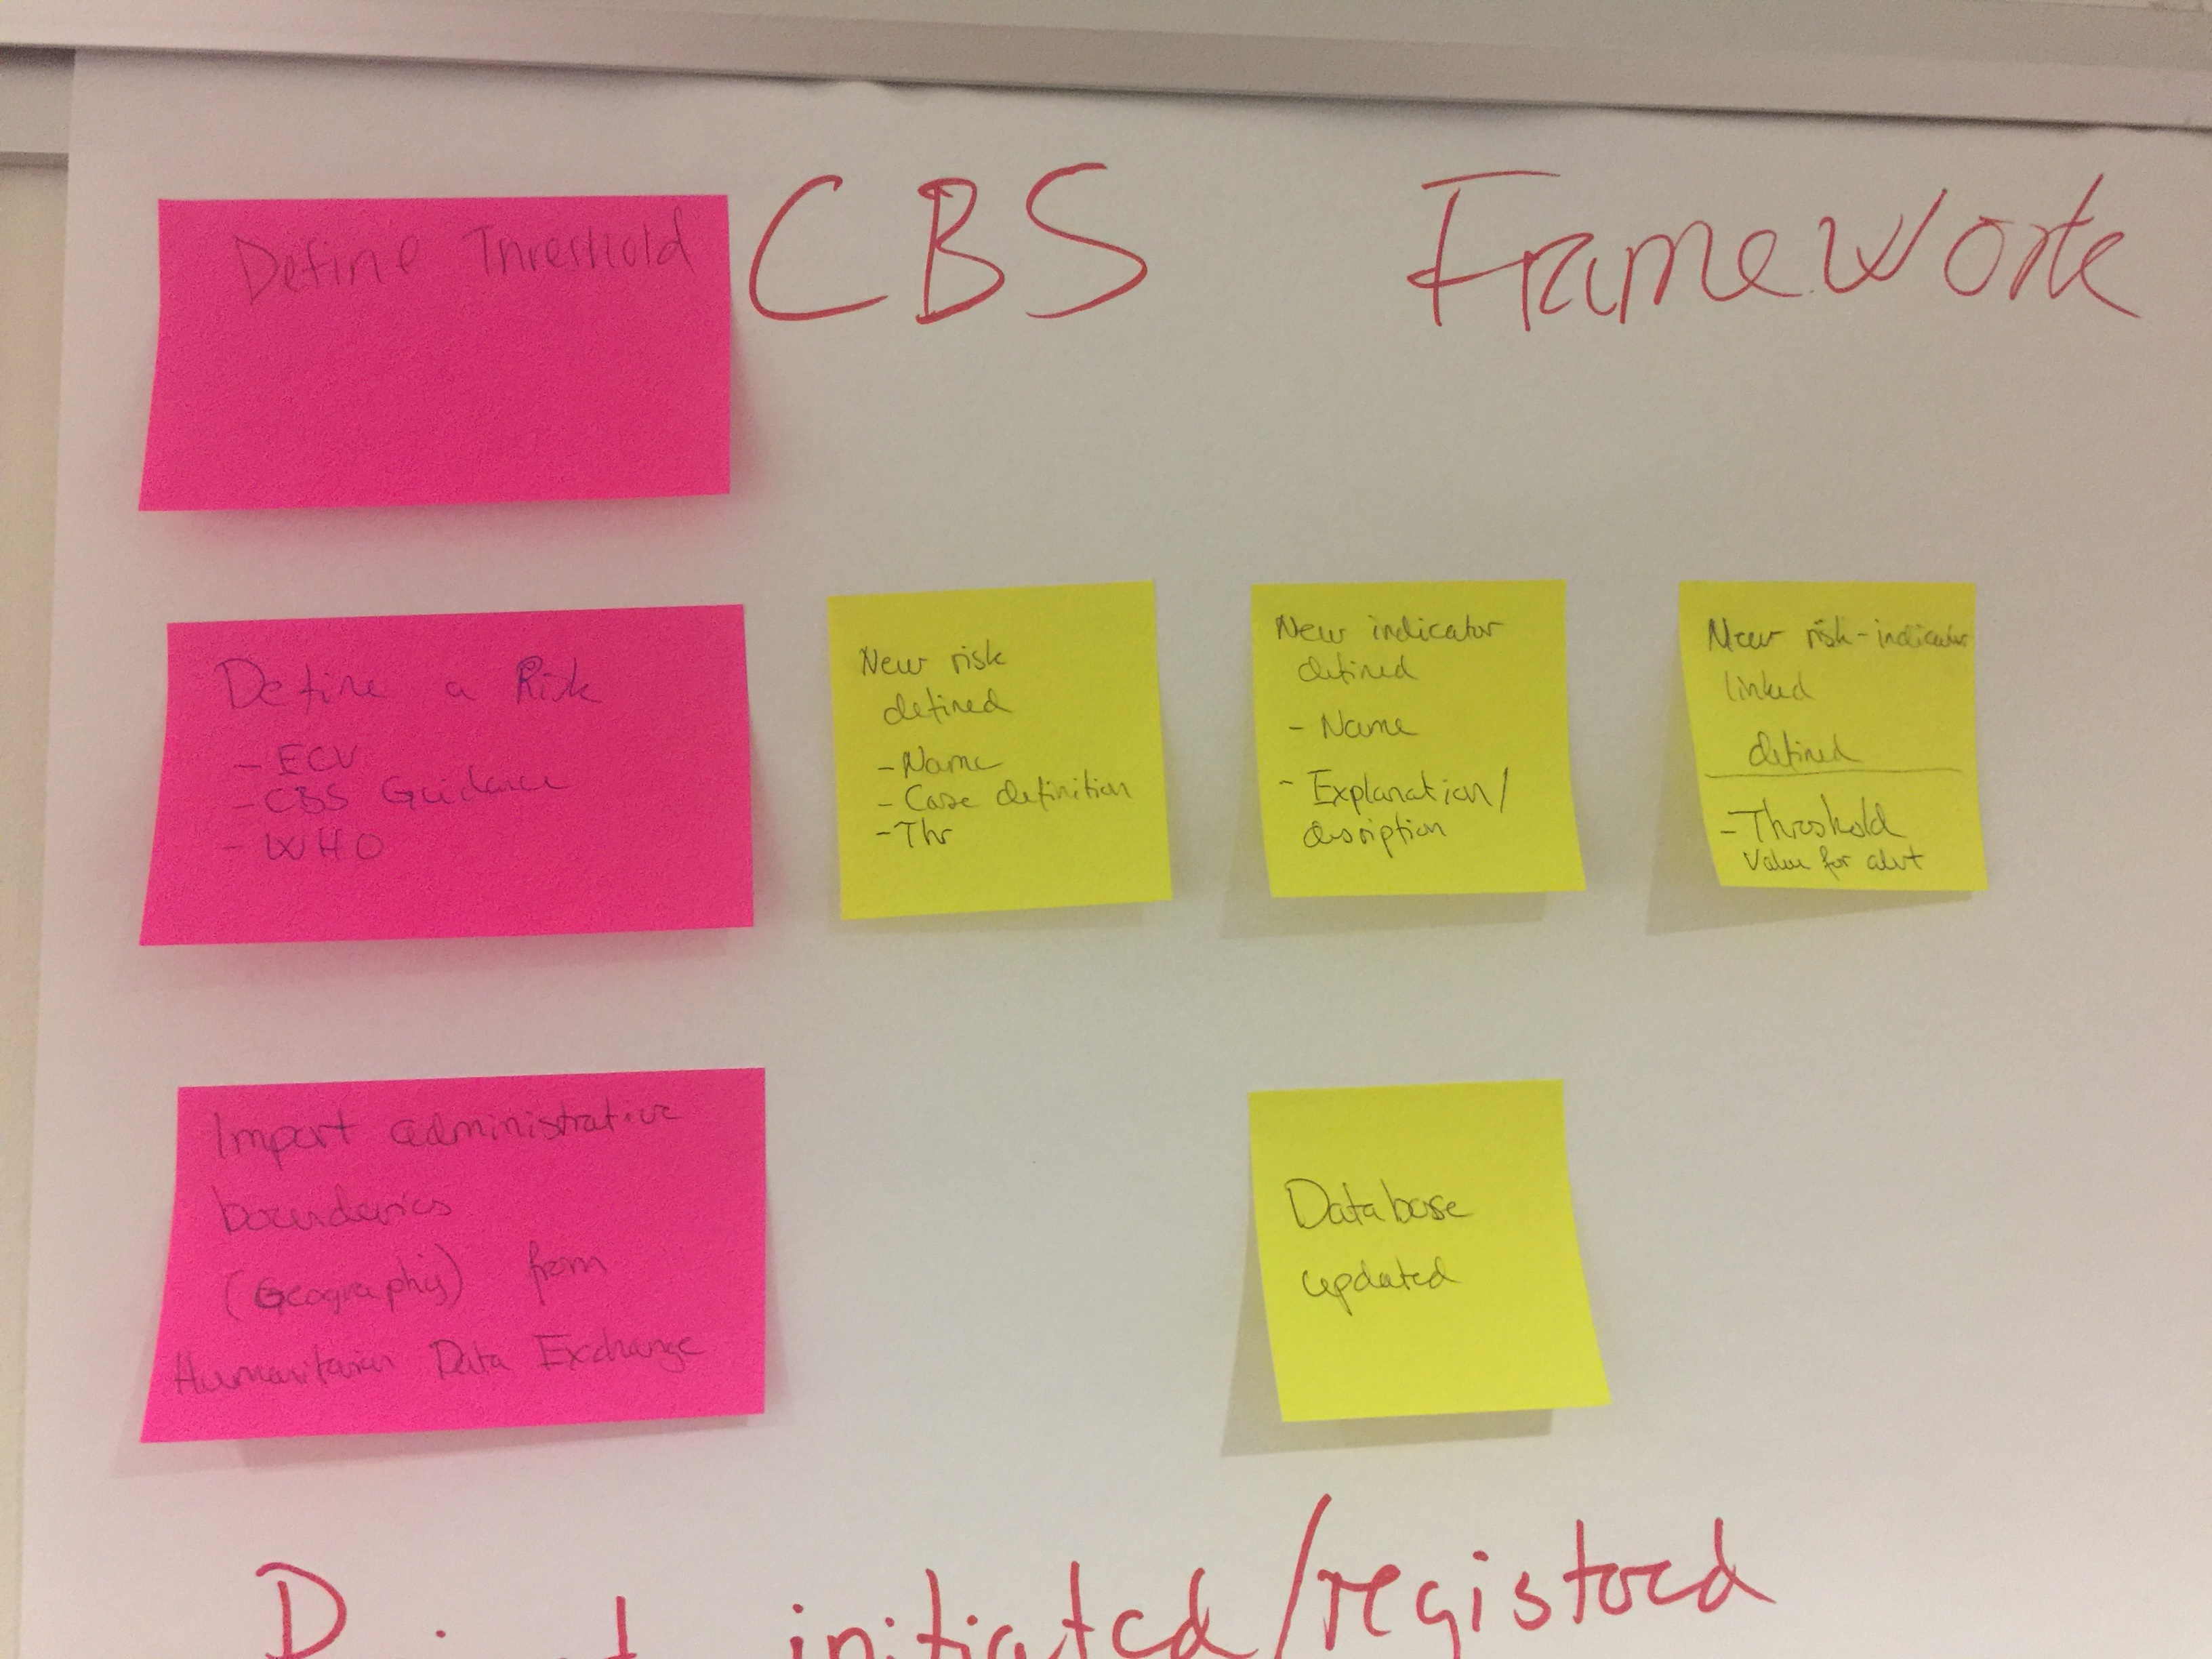 CBS Framework
Define Threshold
Define a Risk
- ECV
- CBS Guidance
- WHO
New risk
defined
- Name
- Case definition
- Thr
New indicator
defined
- Name
- Explanation/
desription
New risk-indicator
linked
defined
- Threshold
Value for alert
Import administrative
bounderies
(Geography) from
Humanitarian Data Exchange
Database
updated
initiated/registered